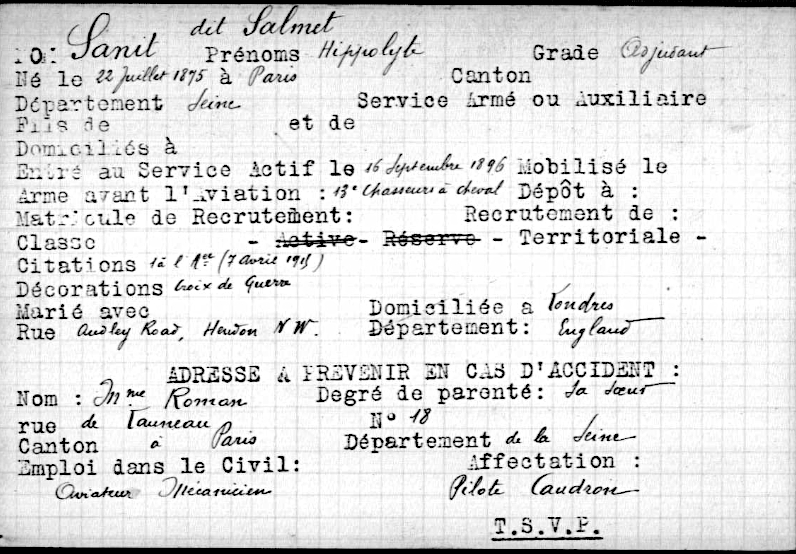 NOM: Sanit dit Salmet Prénoms Hippolyte Grade Adjudant
Né le 22 Juillet 1875 à Paris Canton
Département Seine Service Armé ou Auxiliaire
Fils de et de
Domiciliés à
Entré au Service Actif le 16 Septembre 1896 Mobilisé le
Arme avant l'Aviation : 13e Chasseurs à cheval Dépôt à :
Matricule de Recrutement: Recrutement de :
Classe - Active - Réserve - Territoriale -
Citations 1 à l'Aée (7 avril 1915)
Décorations Croix de Guerre
Marié avec Domiciliée a Londres
Rue Audley Road, Hendon N.W. Département: England
ADRESSE A PREVENIR EN CAS D'ACCIDENT :
Nom : Mme Roman Degré de parenté: sa sœur
rue de N° 18
Canton à Paris Département de la Seine
Emploi dans le Civil: Affectation :
Aviateur Mécanicien Pilote Caudron
T.S.V.P.